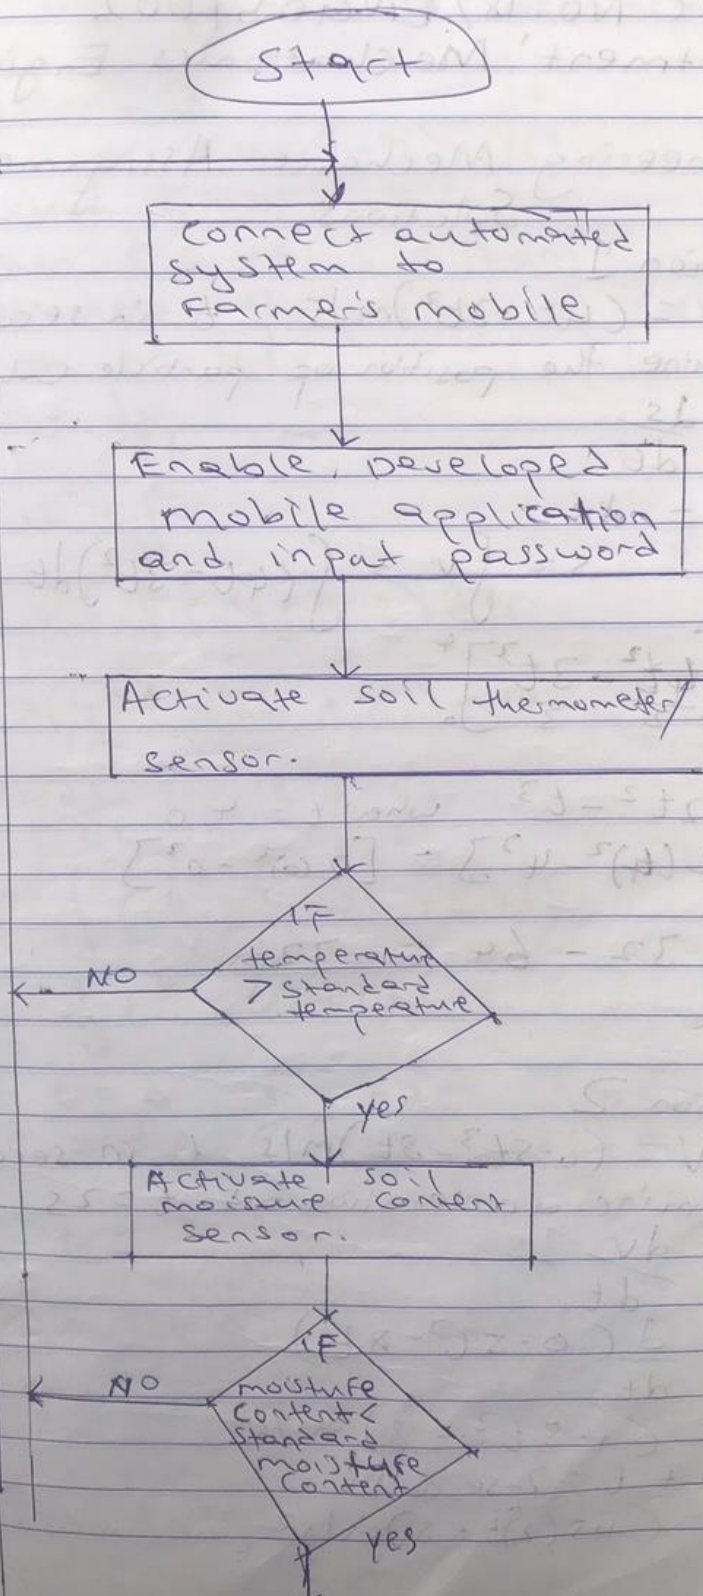 Start
Connect automated
system to
Farmer's mobile
Enable Developed
mobile application
and input password
Activate soil thermometer/
sensor.
IF
temperature
> standard
temperature
NO
yes
Activate soil
moisture content
sensor.
if
moisture
content <
standard
moisture
content
NO
yes